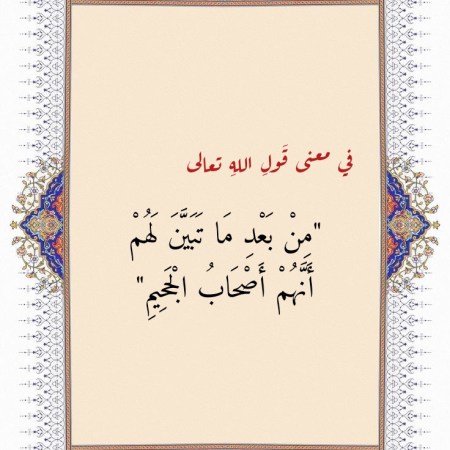 في معنى قَولِ اللهِ تعالى
"مِنْ بَعْدِ مَا تَبَيَّنَ لَهُمْ
أَنَّهُمْ أَصْحَابُ الْجَحِيمِ"